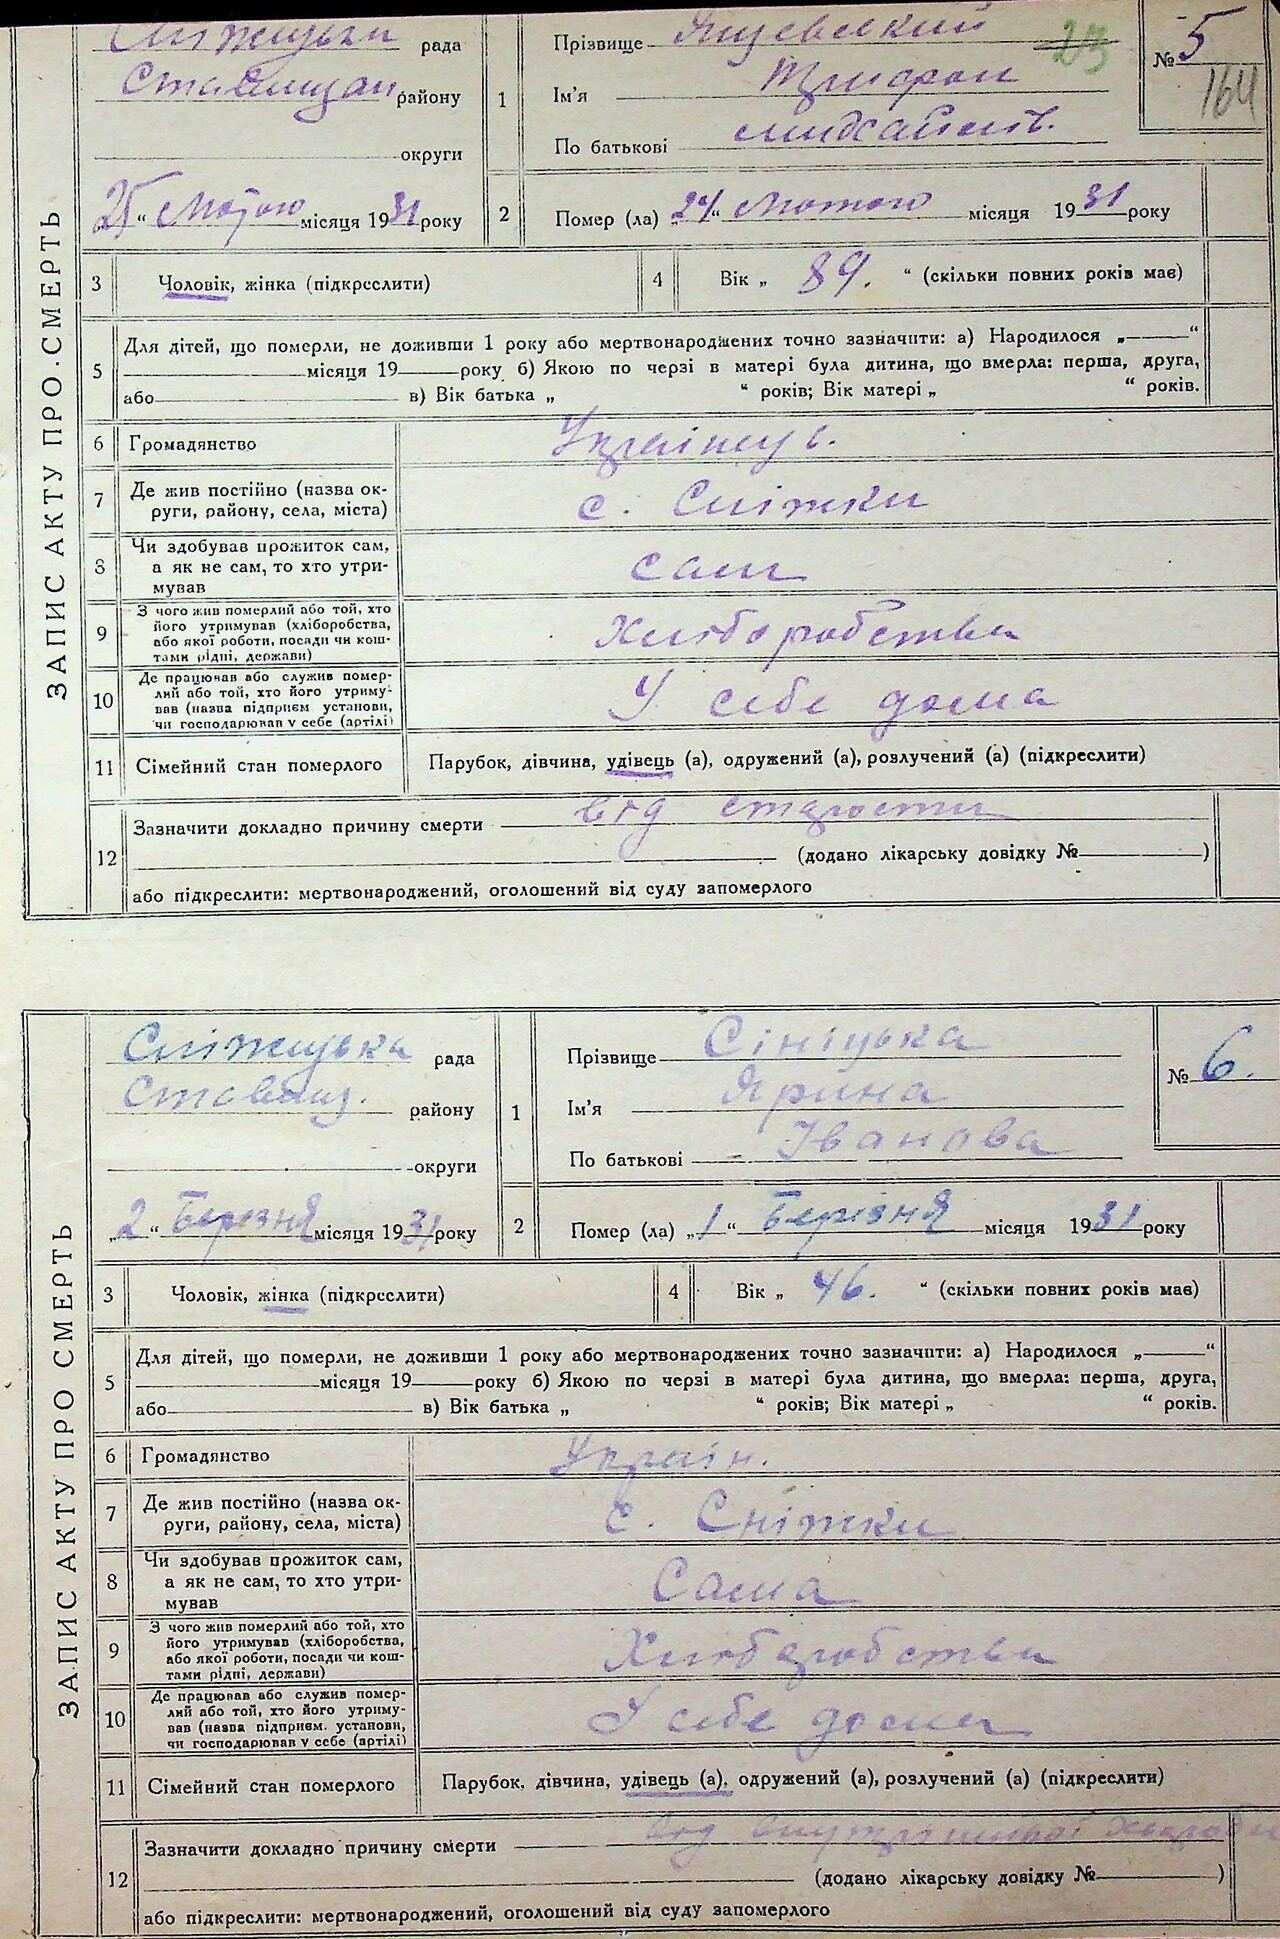 ЗАПИС АКТУ ПРО СМЕРТЬ
рада
Ставищан району
округи
„25“ Лютого місяця 1931 року
1
Прізвище Яцевський
Ім'я Трифон
По батькові Михайлов.
23
№ 5
164
2
Помер (ла) „24“ Лютого місяця 1931 року
3 Чоловік, жінка (підкреслити)
4 Вік „ 89. “ (скільки повних років має)
5
Для дітей, що померли, не доживши 1 року або мертвонароджених точно зазначити: а) Народилося „ “
місяця 19 року б) Якою по черзі в матері була дитина, що вмерла: перша, друга,
або в) Вік батька „ “ років; Вік матері „ “ років.
6 Громадянство Українець.
7 Де жив постійно (назва ок-
руги, району, села, міста) с. Сніжки
8 Чи здобував прожиток сам,
а як не сам, то хто утри-
мував сам
9 З чого жив померлий або той, хто
його утримував (хліборобства,
або якої роботи, посади чи кош-
тами рідні, держави) Хліборобства
10 Де працював або служив помер-
лий або той, хто його утриму-
вав (назва підприєм установи,
чи господарював у себе (артілі) У себе дома
11 Сімейний стан померлого Парубок, дівчина, удівець (а), одружений (а), розлучений (а) (підкреслити)
12
Зазначити докладно причину смерти від старости
(додано лікарську довідку № )
або підкреслити: мертвонароджений, оголошений від суду запомерлого
ЗАПИС АКТУ ПРО СМЕРТЬ
Сніжицька рада
Ставищ. району
округи
„2“ Березня місяця 1931 року
1
Прізвище Сініцька
Ім'я Ярина
По батькові Іванова
№ 6.
2
Помер (ла) „1“ Березня місяця 1931 року
3 Чоловік, жінка (підкреслити)
4 Вік „ 46. “ (скільки повних років має)
5
Для дітей, що померли, не доживши 1 року або мертвонароджених точно зазначити: а) Народилося „ “
місяця 19 року б) Якою по черзі в матері була дитина, що вмерла: перша, друга,
або в) Вік батька „ “ років; Вік матері „ “ років.
6 Громадянство Україн.
7 Де жив постійно (назва ок-
руги, району, села, міста) с. Сніжки
8 Чи здобував прожиток сам,
а як не сам, то хто утри-
мував Сама
9 З чого жив померлий або той, хто
його утримував (хліборобства,
або якої роботи, посади чи кош-
тами рідні, держави) Хліборобства
10 Де працював або служив помер-
лий або той, хто його утриму-
вав (назва підприєм. установи,
чи господарював у себе (артілі) У себе дома
11 Сімейний стан померлого Парубок, дівчина, удівець (а), одружений (а), розлучений (а) (підкреслити)
12
Зазначити докладно причину смерти від внутрішньої хвороби
(додано лікарську довідку № )
або підкреслити: мертвонароджений, оголошений від суду запомерлого